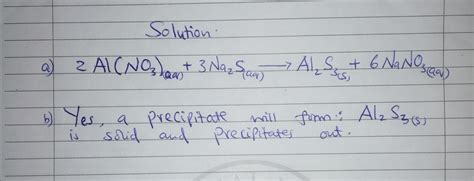 Solution.
a) 2 Al(NO3)(aq) + 3Na2S(aq) → Al2S3(s) + 6NaNO3(aq)
b) Yes, a precipitate will form: Al2S3(s)
is solid and precipitates out.